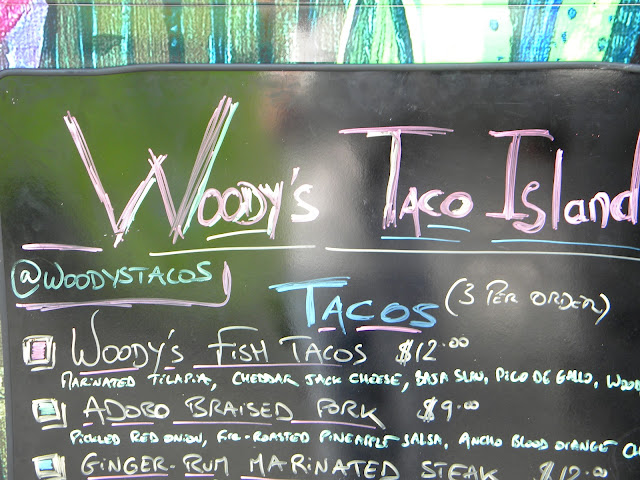 Woody's Taco Island
@WOODYSTACOS
TACOS (3 PER ORDER)
WOODY'S FISH TACOS $12.00
MARINATED TILAPIA, CHEDDAR JACK CHEESE, BAJA SLAW, PICO DE GALLO,
ADOBO BRAISED PORK $9.00
PICKLED RED ONION, FIRE-ROASTED PINEAPPLE SALSA, ANCHO BLOOD ORANGE
GINGER-RUM MARINATED STEAK $12.00